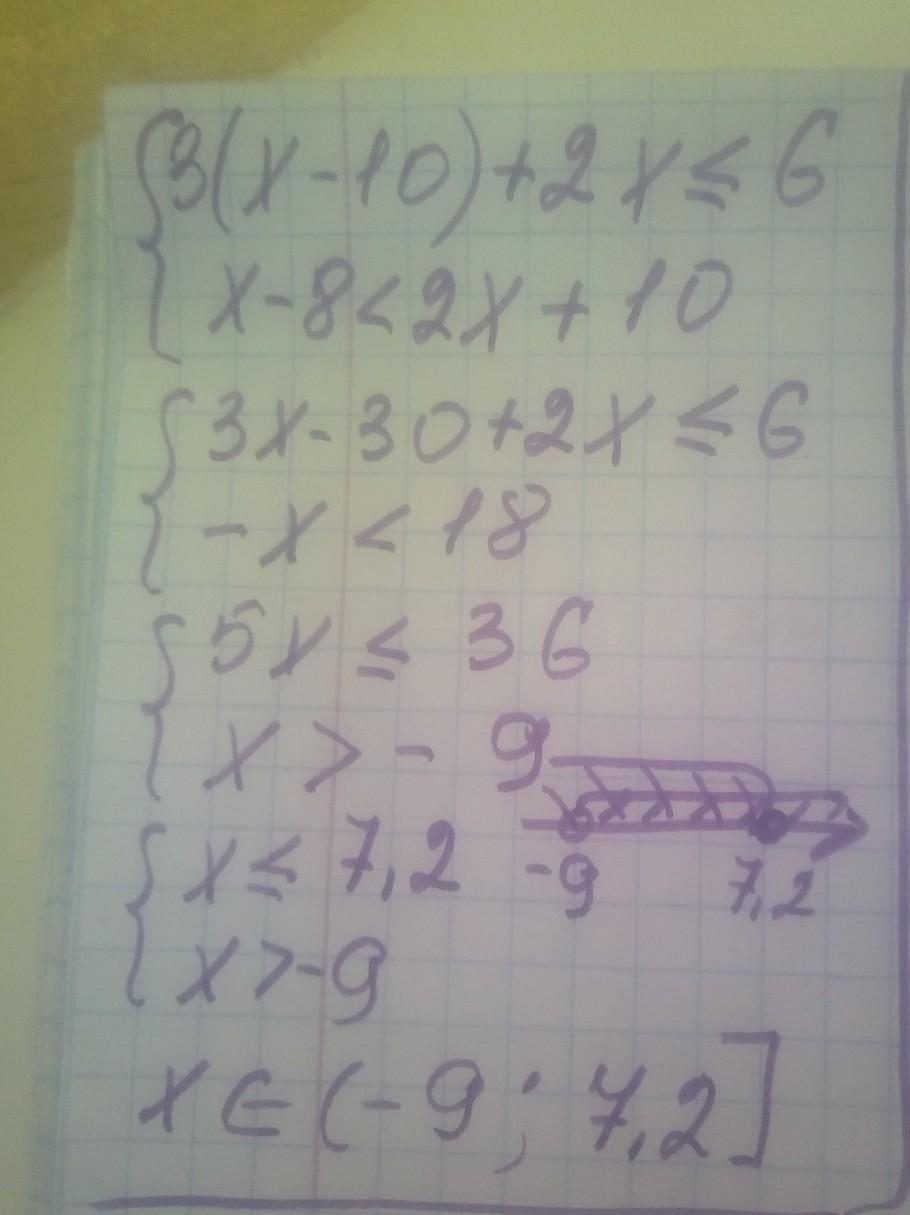 3(x-10)+2x≤6
x-8<2x+10
3x-30+2x≤6
-x<18
5x≤36
x>-9
x≤7,2
-9 7,2
x>-9
x∈(-9; 7,2]